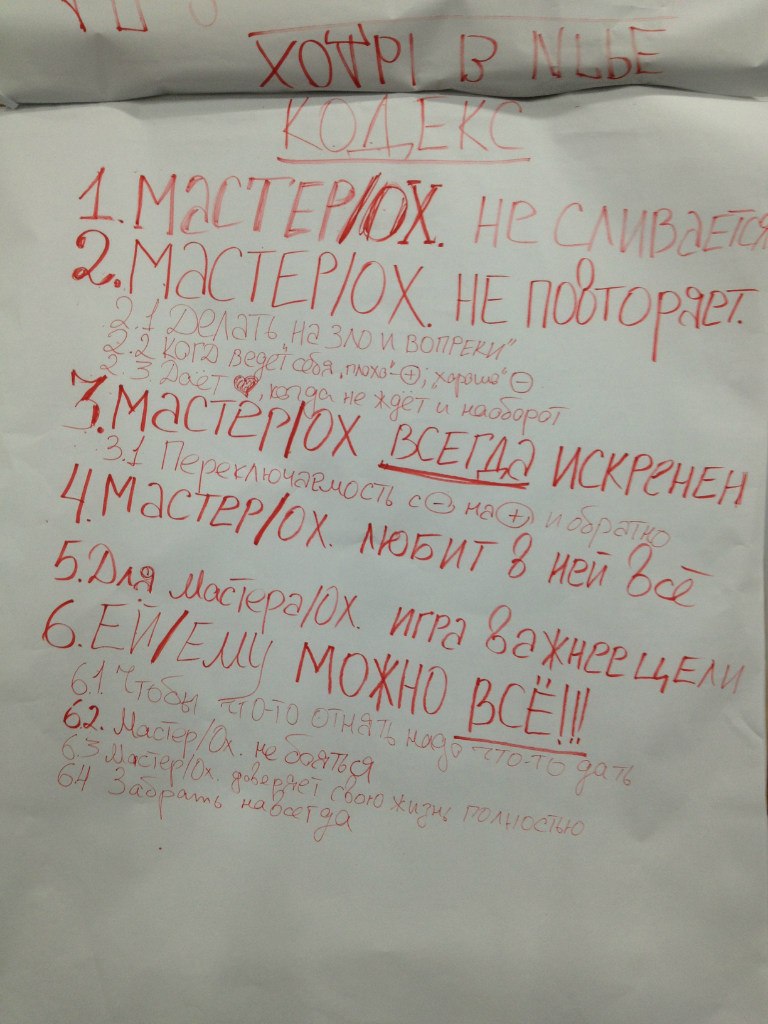 КОДЕКС
1. МАСТЕР/ОХ. НЕ СЛИВАЕТСЯ
2. МАСТЕР/ОХ. НЕ ПОВТОРЯЕТ.
2.1 Делать „на зло и вопреки"
2.2 когд ведет себя „плохо" ⊕; „хорошо" ⊖
2.3 Даёт ♥, когда не ждёт и наоборот
3. МАСТЕР/ОХ ВСЕГДА ИСКРЕНЕН
3.1 Переключаемость с ⊖ на ⊕ и обратно
4. МАСТЕР/ОХ. ЛЮБИТ В НЕЙ ВСЁ
5. Для Мастера/ОХ. игра важнее цели
6. ЕЙ/ЕМУ МОЖНО ВСЁ!!!
6.1 Чтобы что-то отнять надо что-то дать
6.2. Мастер/Ох. не бояться
6.3 Мастер/Ох. доверяет свою жизнь полностью
64 Забрать навсегда